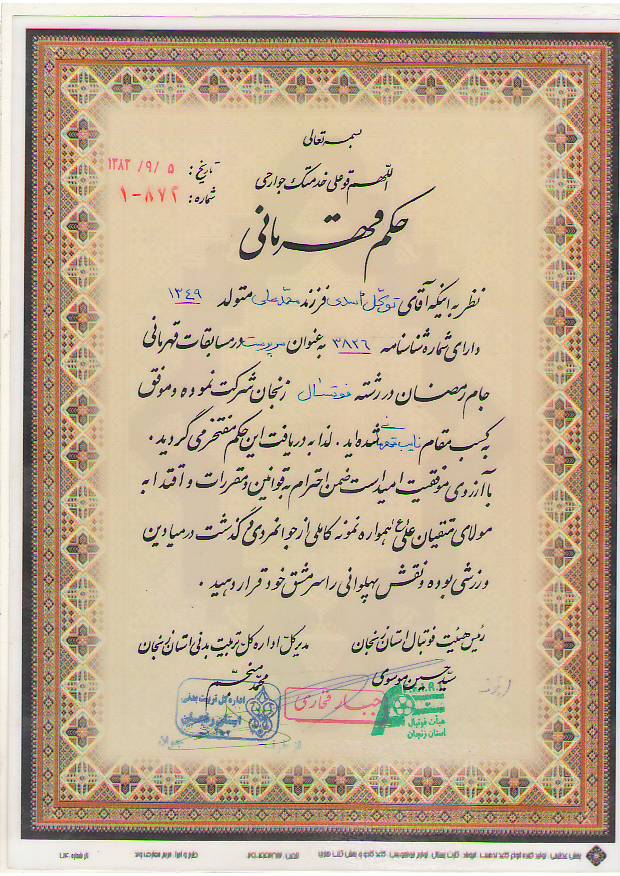 بسمه تعالی
تاریخ: ۱۳۸۳/۹/۵
اللهم قو علی خدمتک جوارحی
شماره: ۱-۸۷۲
حکم قهرمانی
نظر به اینکه آقای توکل اسدی فرزند محمدعلی متولد ۱۳۴۹
دارای شماره شناسنامه ۳۸۲۶ به عنوان سرپرست در مسابقات قهرمانی
جام رمضان در رشته فوتسال زنجان شرکت نموده و موفق
به کسب مقام نایب قهرمانی شده اید. لذا به دریافت این حکم مفتخر می گردید.
با آرزوی موفقیت امید است ضمن احترام به قوانین و مقررات و اقتدا به
مولای متقیان علی (ع) همواره نمونه کاملی از جوانمردی و گذشت در میادین
ورزشی بوده و نقش پهلوانی را سرمشق خود قرار دهید.
رئیس هیئت فوتبال استان زنجان
مدیر کل اداره کل تربیت بدنی استان زنجان
سید حسین موسوی
محمد منجم
جبار فخاری
هیأت فوتبال
استان زنجان
اداره کل تربیت بدنی
استان زنجان